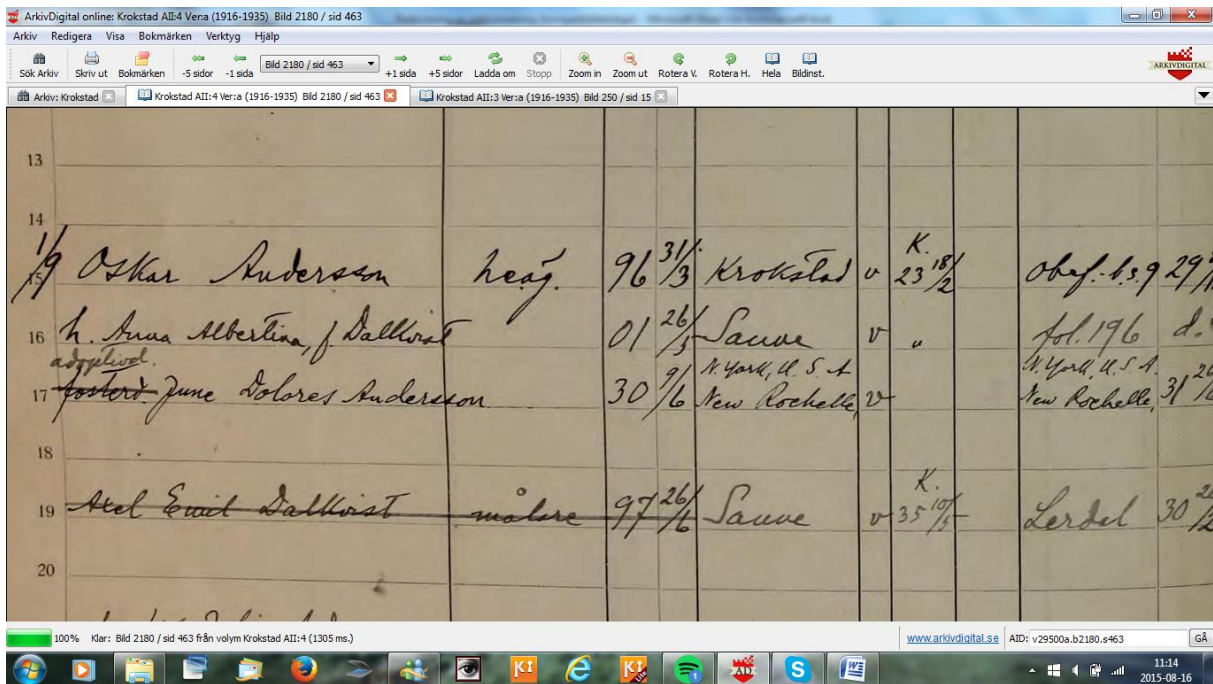 ArkivDigital online: Krokstad AII:4 Ver:a (1916-1935) Bild 2180 / sid 463
Arkiv Redigera Visa Bokmärken Verktyg Hjälp
Sök Arkiv Skriv ut Bokmärken -5 sidor -1 sida Bild 2180 / sid 463 +1 sida +5 sidor Ladda om Stopp Zoom in Zoom ut Rotera V. Rotera H. Hela Bildinst.
ARKIVDIGITAL
Arkiv: Krokstad Krokstad AII:4 Ver:a (1916-1935) Bild 2180 / sid 463 Krokstad AII:3 Ver:a (1916-1935) Bild 250 / sid 15
13
14
1/9 K.
15 Oskar Andersson heäg. 96 31/3 Krokstad v 23 18/2 Obef. b. s. 9 29
16 h. Anna Albertina, f. Dallkvist 01 26/ Sanne v " fol. 196 d.
adoptivd. N. York, U.S.A N. York, U.S.A.
17 fosterd. June Dolores Andersson 30 9/6 New Rochelle, v New Rochelle, 31
18
K.
19 Axel Emil Dallkvist målare 97 26/6 Sanne v 35 10/5 Lerdal 30
20
100% Klar: Bild 2180 / sid 463 från volym Krokstad AII:4 (1305 ms.) www.arkivdigital.se AID: v29500a.b2180.s463 GÅ
11:14
2015-08-16